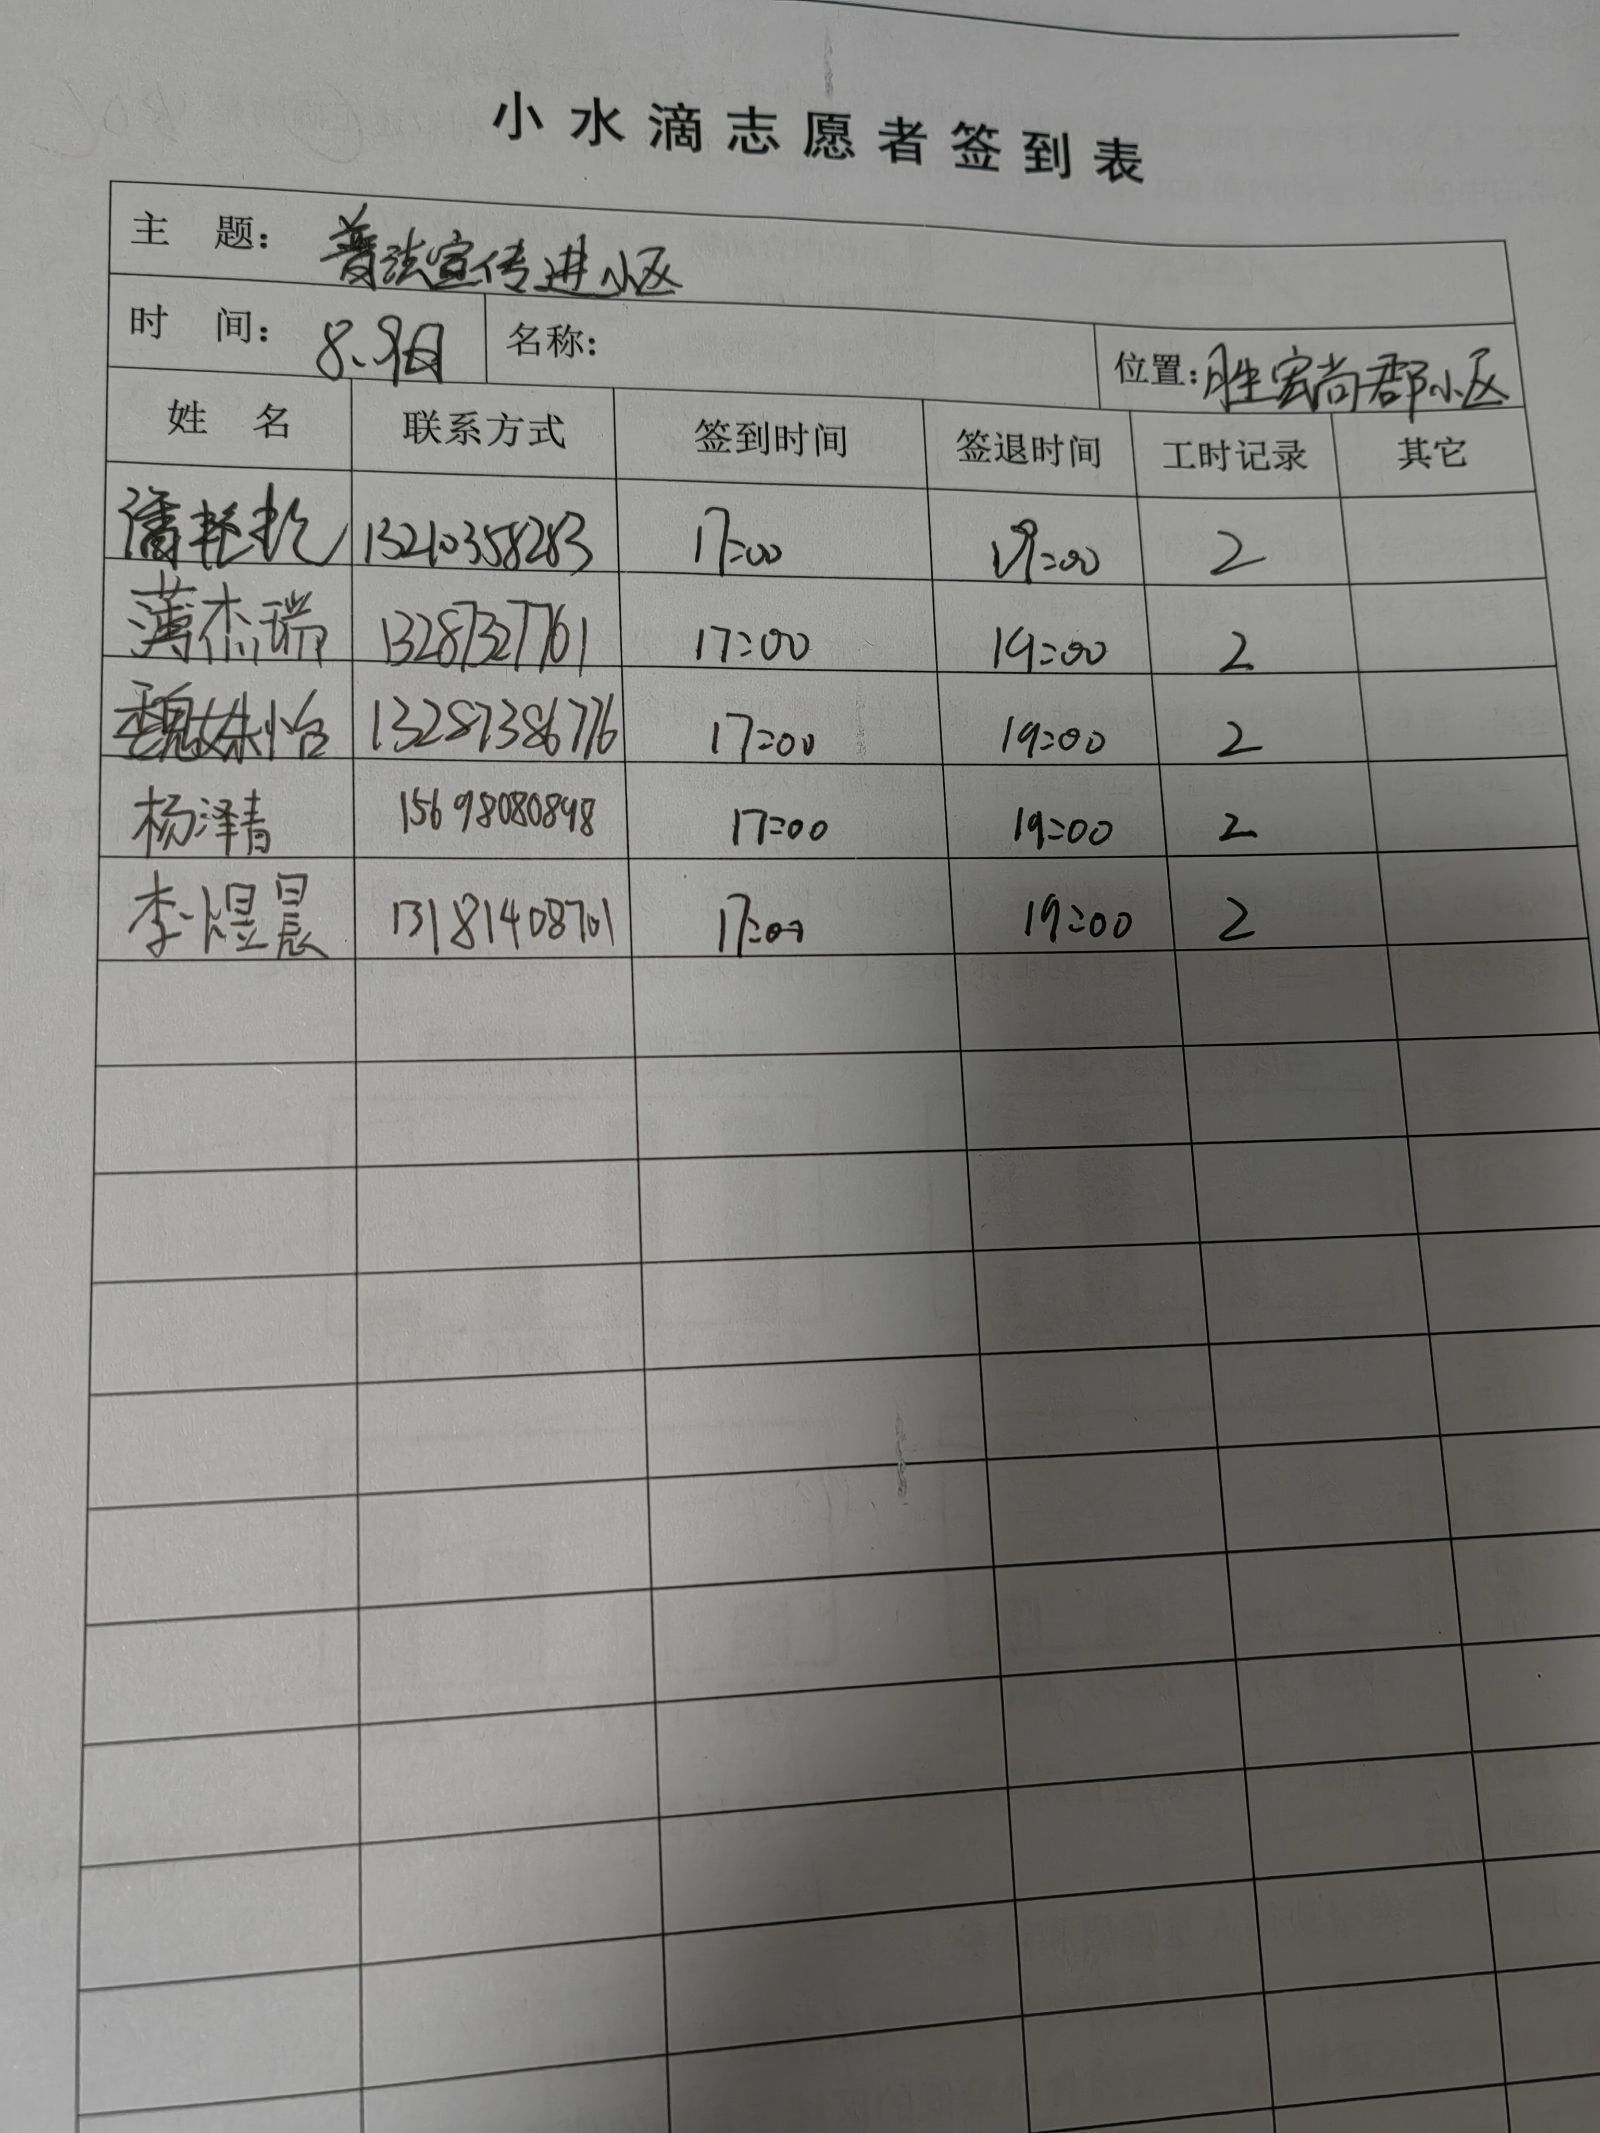 小水滴志愿者签到表
主 题： 普法宣传进小区
时 间： 8.9日 名称： 位置：胜宏尚郡小区
姓 名 联系方式 签到时间 签退时间 工时记录 其它
潘 13210358283 17:00 19:00 2
薄杰瑞 13287327761 17:00 19:00 2
魏姝怡 13287386776 17:00 19:00 2
杨泽清 15698080898 17:00 19:00 2
李煜晨 13181408701 17:00 19:00 2